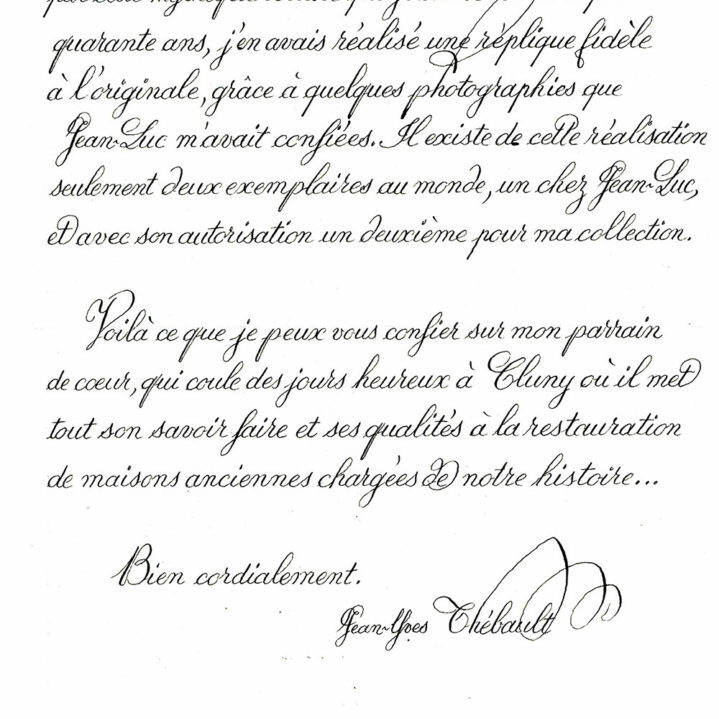 quarante ans, j'en avais réalisé une réplique fidèle
à l'originale, grâce à quelques photographies que
Jean-Luc m'avait confiées. Il existe de cette réalisation
seulement deux exemplaires au monde, un chez Jean-Luc,
et avec son autorisation un deuxième pour ma collection.
Voilà ce que je peux vous confier sur mon parrain
de coeur, qui coule des jours heureux à Cluny où il met
tout son savoir faire et ses qualités à la restauration
de maisons anciennes chargées de notre histoire...
Bien cordialement.
Jean-Yves Thébault